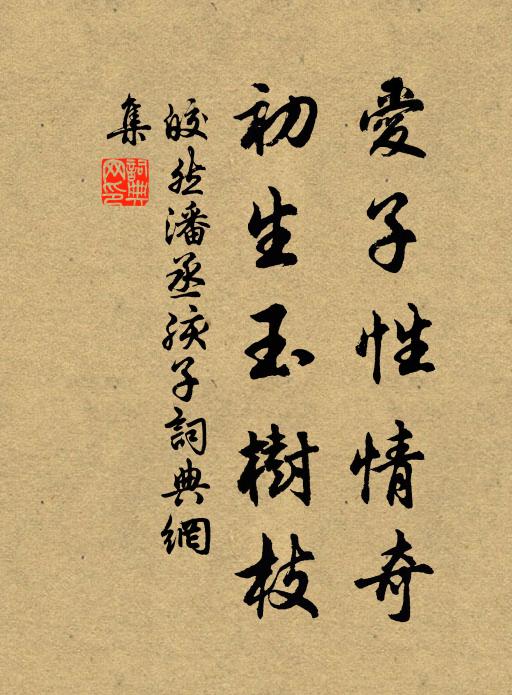 愛子性情奇
初生玉樹枝
皎然潘丞孩子詞典網
集
詞典
网印